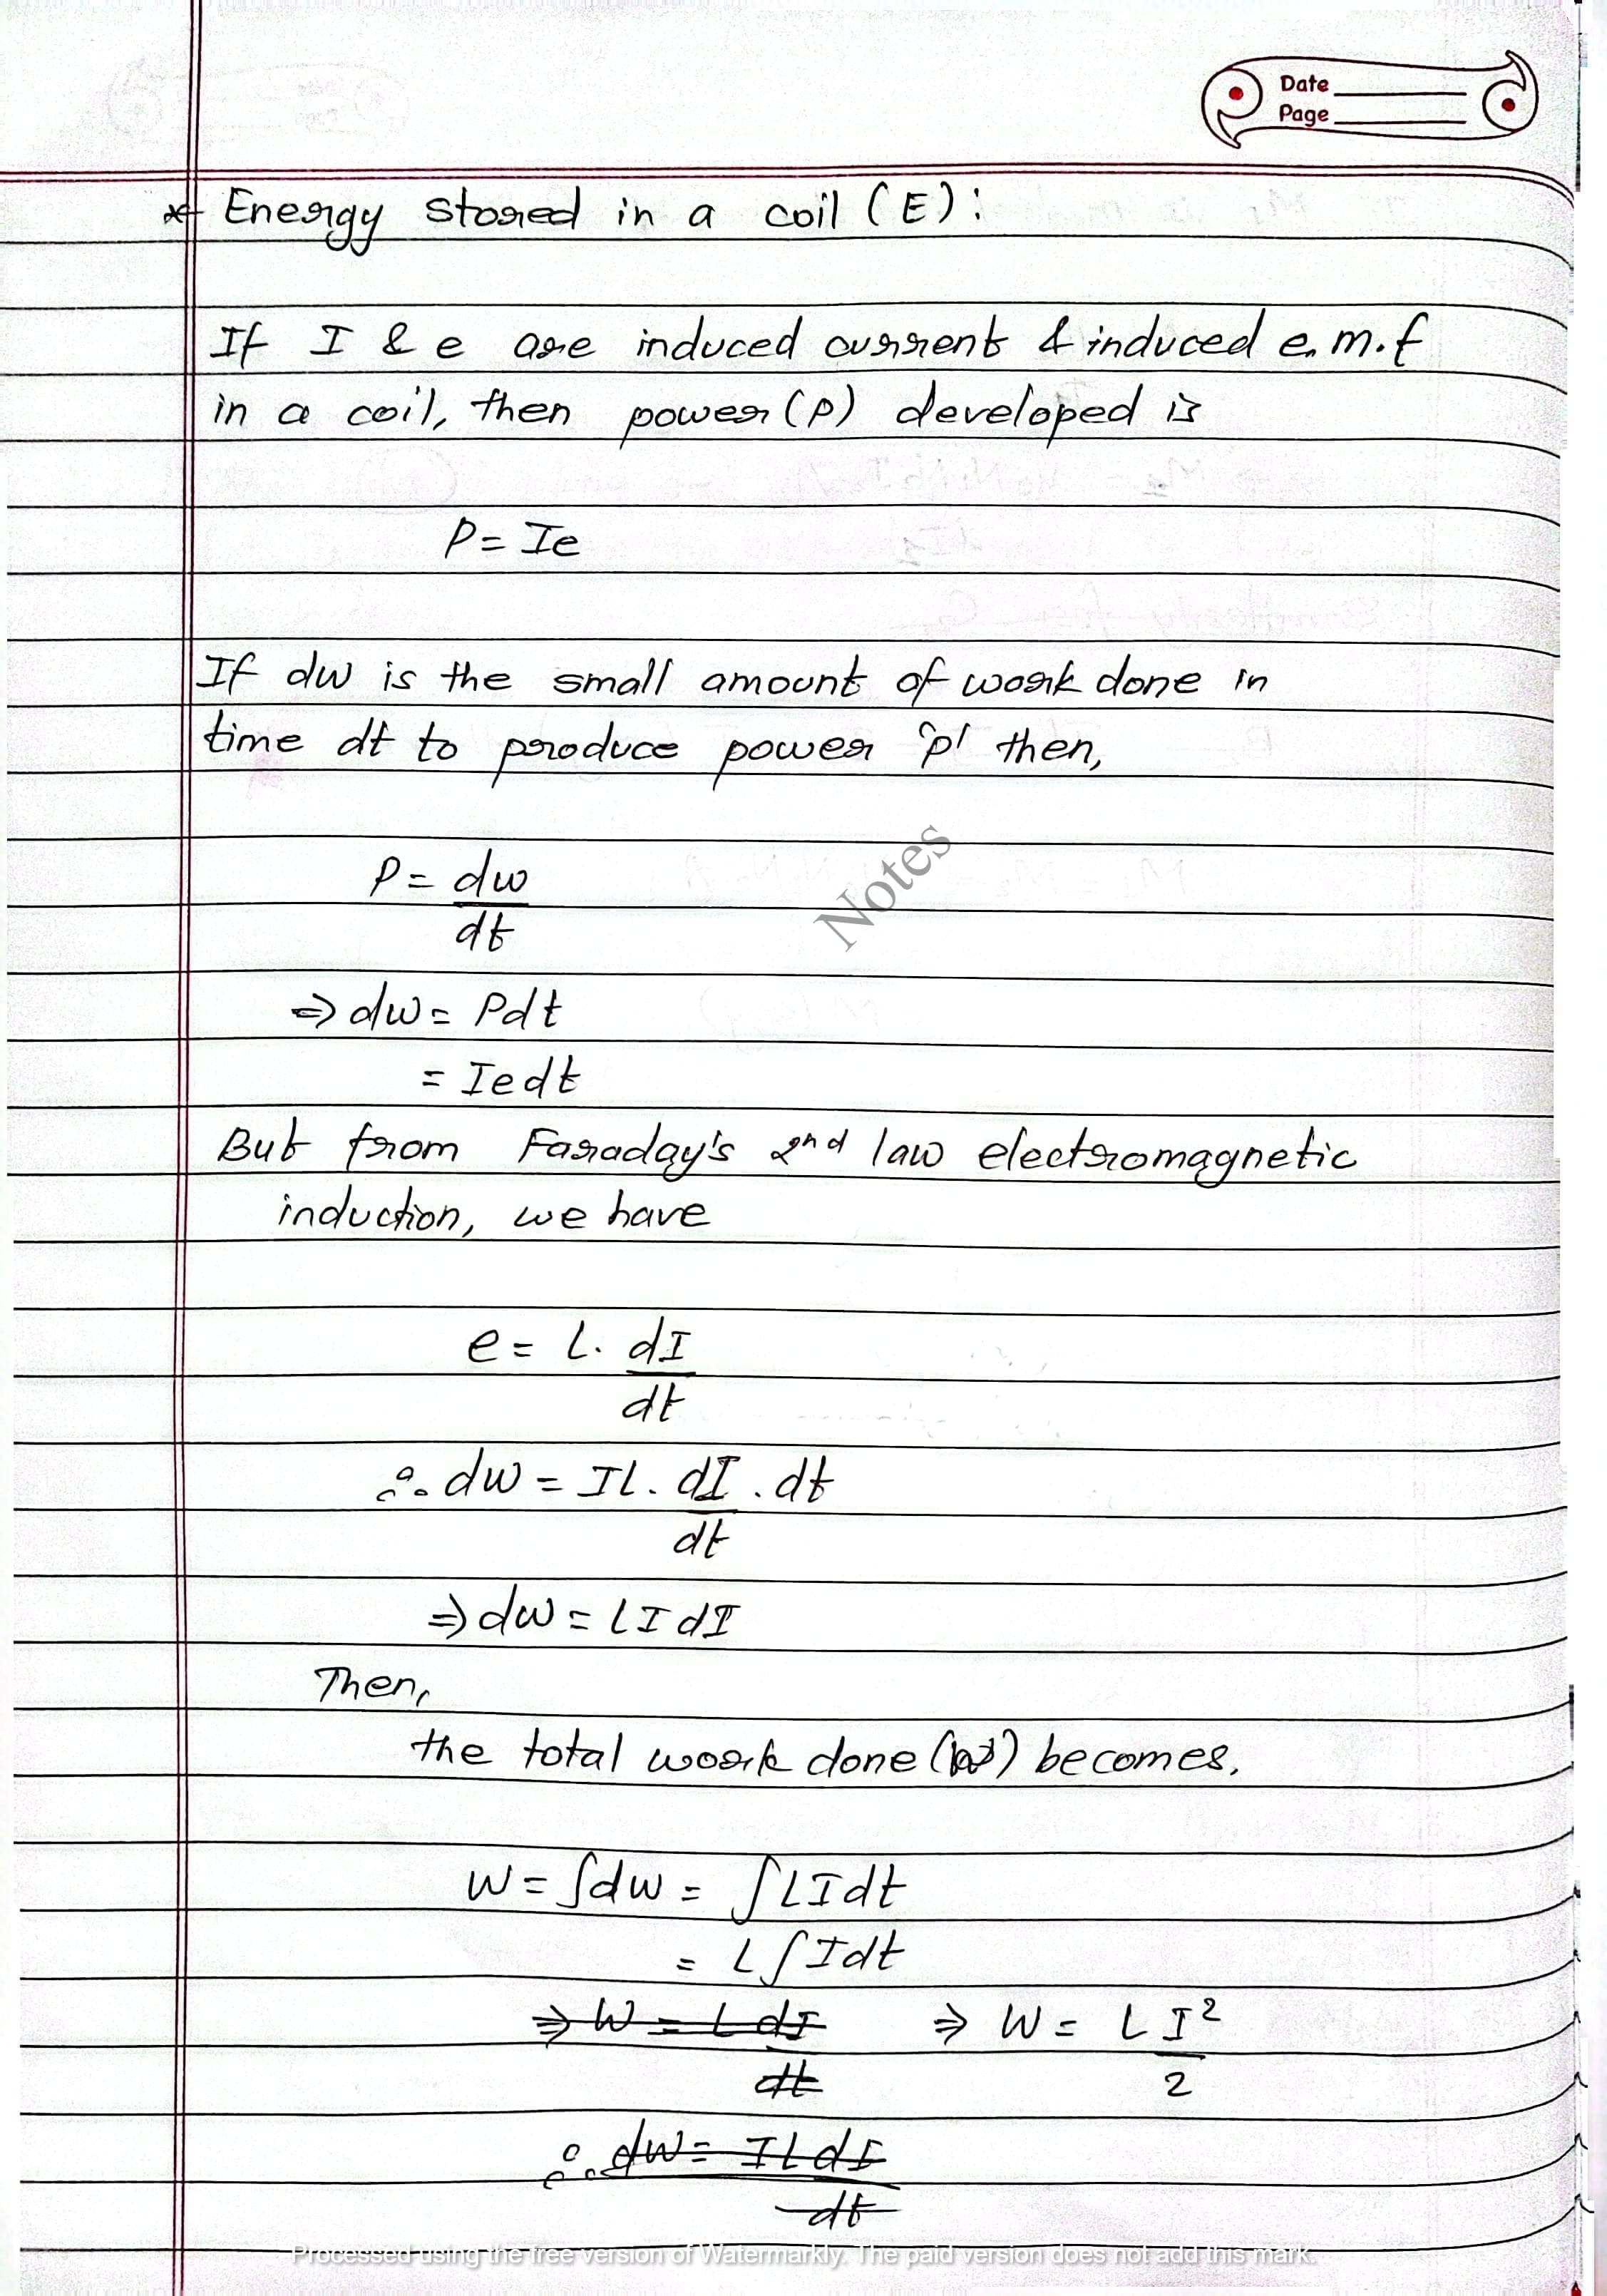 Date
Page
* Energy stored in a coil (E):
If I & e are induced current & induced e.m.f
in a coil, then power (P) developed is
P = Ie
If dw is the small amount of work done in
time dt to produce power 'p' then,
P = dw
dt
⇒ dw = Pdt
= Iedt
But from Faraday's 2nd law electromagnetic
induction, we have
e = L. dI
dt
∴ dw = IL. dI . dt
dt
⇒ dw = LIdI
Then,
the total work done (w) becomes.
W = ∫dw = ∫LIdt
= L∫Idt
⇒ W = L dI ⇒ W = L I²
dt 2
∴ dw = ILdI
dt
Notes
Processed using the free version of Watermarkly. The paid version does not add this mark.